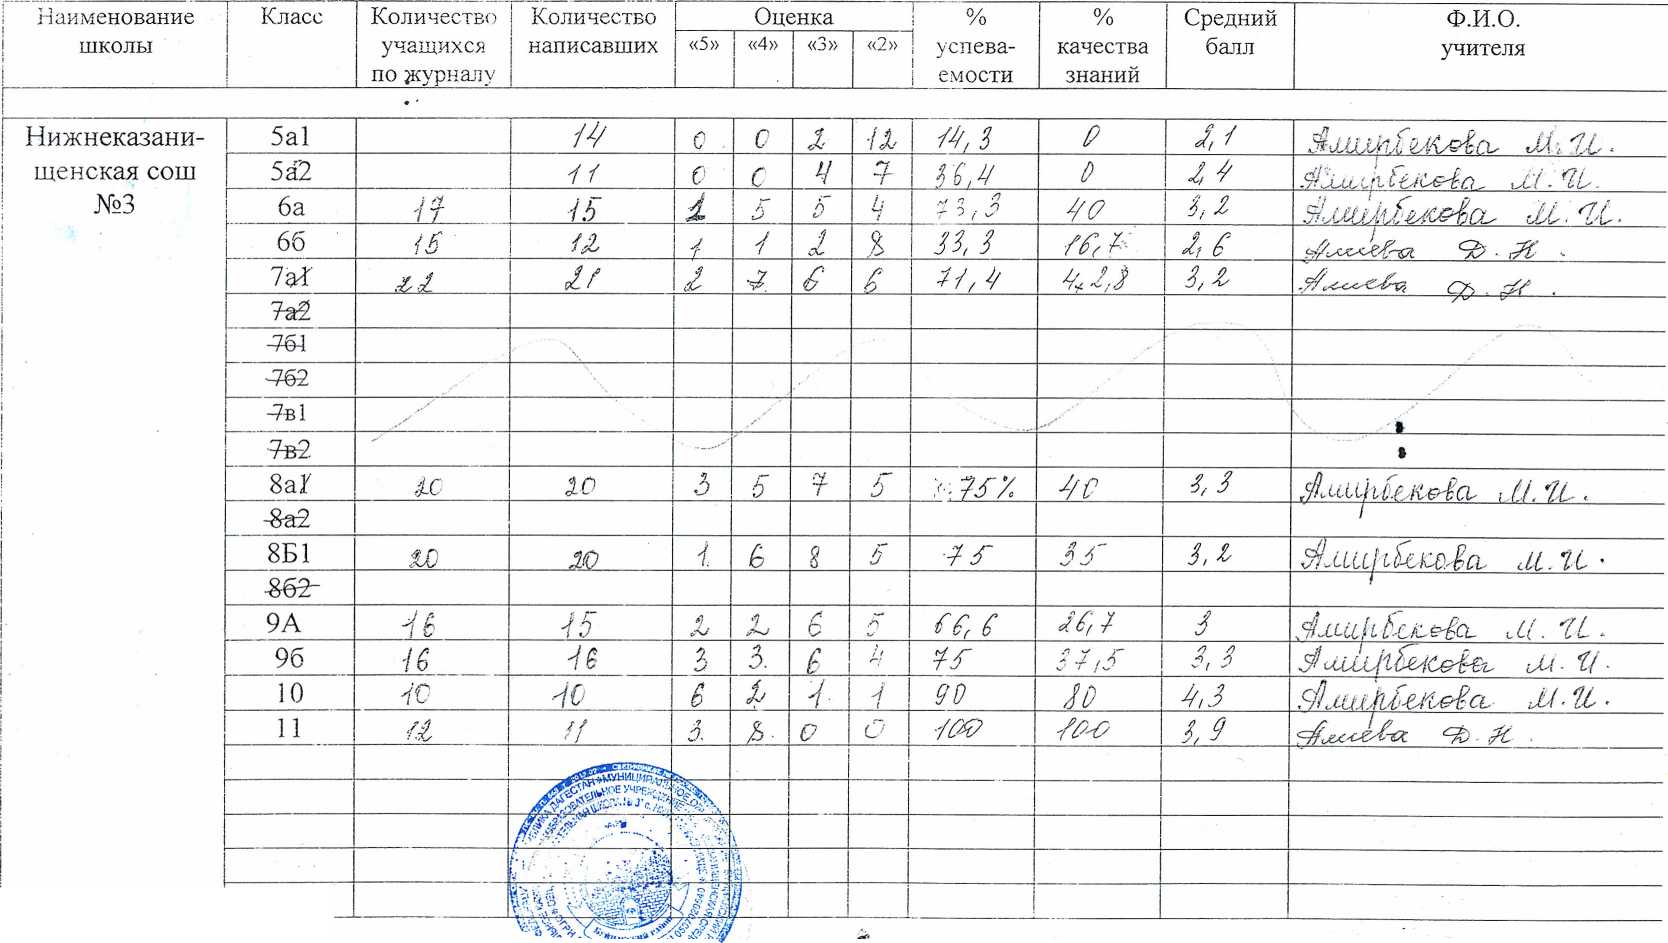 Наименование школы Класс Количество учащихся по журналу Количество написавших Оценка «5» «4» «3» «2» % успева-емости % качества знаний Средний балл Ф.И.О. учителя
Нижнеказани-
щенская сош
№3
5а1 14 0 0 2 12 14,3 0 2,1 Амирбекова М.И.
5а2 11 0 0 4 7 36,4 0 2,4 Амирбекова М.И.
6а 17 15 1 5 5 4 73,3 40 3,2 Амирбекова М.И.
6б 15 12 1 1 2 8 33,3 16,7 2,6 Алиева Д.Н.
7а1 22 21 2 7 6 6 71,4 42,8 3,2 Алиева Д.Н.
7а2
7б1
7б2
7в1
7в2
8а1 20 20 3 5 7 5 75% 40 3,3 Амирбекова М.И.
8а2
8Б1 20 20 1 6 8 5 75 35 3,2 Амирбекова М.И.
8б2
9А 16 15 2 2 6 5 66,6 26,7 3 Амирбекова М.И.
9б 16 16 3 3 6 4 75 37,5 3,3 Амирбекова М.И.
10 10 10 6 2 1 1 90 80 4,3 Амирбекова М.И.
11 12 11 3 8 0 0 100 100 3,9 Алиева Д.Н.
ДАГЕСТАН МУНИЦИПАЛЬНОЕ